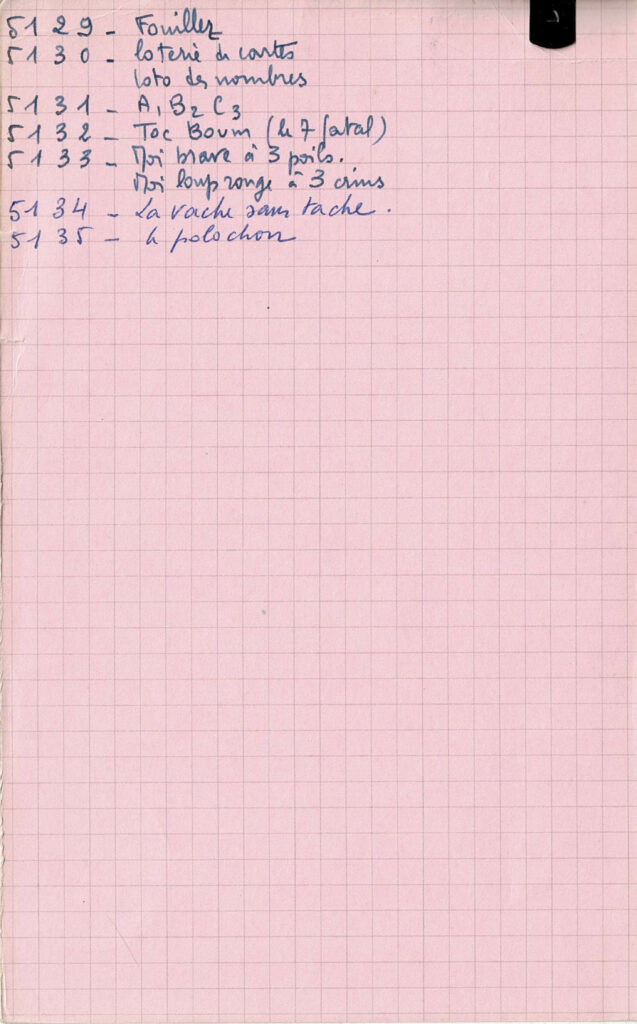 5129 - Fouillez
5130 - loterie de cartes
loto des nombres
5131 - A1 B2 C3
5132 - Toc Boum (le 7 fatal)
5133 - Moi brave à 3 poils.
Moi loup rouge à 3 crins
5134 - La vache sans tache.
5135 - le polochon